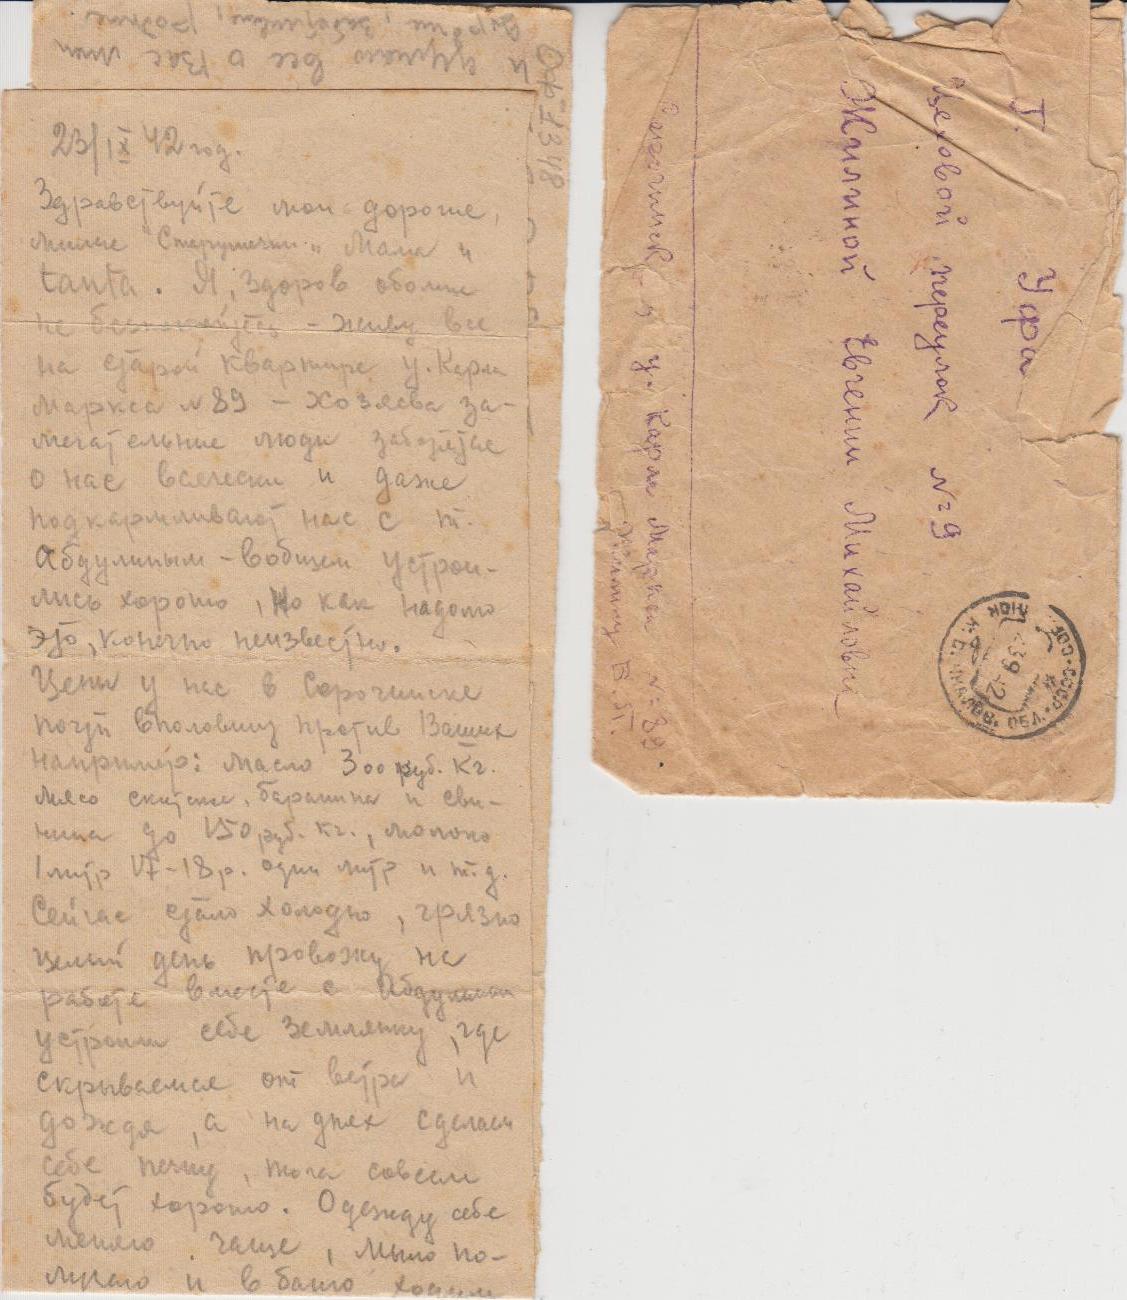 и думаю все о Вас мои
23/IX 42 год.
Здравствуйте мои дорогие,
милые "Старушечки" Мама и
tanta. Я, здоров обо мне
не беспокойтесь - живу все
на старой квартире у. Карла
Маркса № 89 - Хозяева за-
мечательные люди заботятся
о нас всячески и даже
подкармливают нас с т.
Абдулиным - вобщем устрои-
лись хорошо, но как надолго
это, конечно неизвестно.
Цены у нас в Сорочинске
почти вполовину против Ваших
например: масло 300 руб. кг.
мясо скотское, баранина и сви-
нина до 150 руб. кг., молоко
1 литр 17-18 р. один литр и т.д.
Сейчас стало холодно, грязно
целый день провожу на
работе вместе с Абдулиным
устроили себе землянку, где
скрываемся от ветра и
дождя, а на днях сделаем
себе печку, тога совсем
будет хорошо. Одежду себе
меняю чаще, мыло по-
лучаю и в баню ходим
Оф 1348
г. Уфа
Цеховой переулок № 9
Жилиной Евгении Михайловне
Сорочинск у. Карла Маркса № 89.
Жилину В. П.